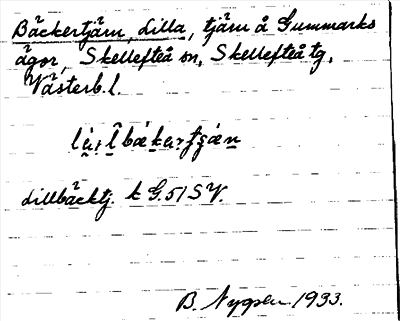 Bäckertjärn, Lilla, tjärn å Gummarks
ägor, Skellefteå sn, Skellefteå tg,
Västerb.l.
lillbäcktj. k G.51 SV.
B. Nygren 1933.